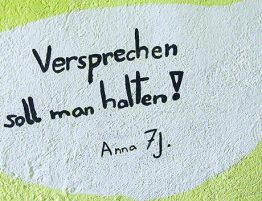 Versprechen
soll man halten!
Anna 7J.